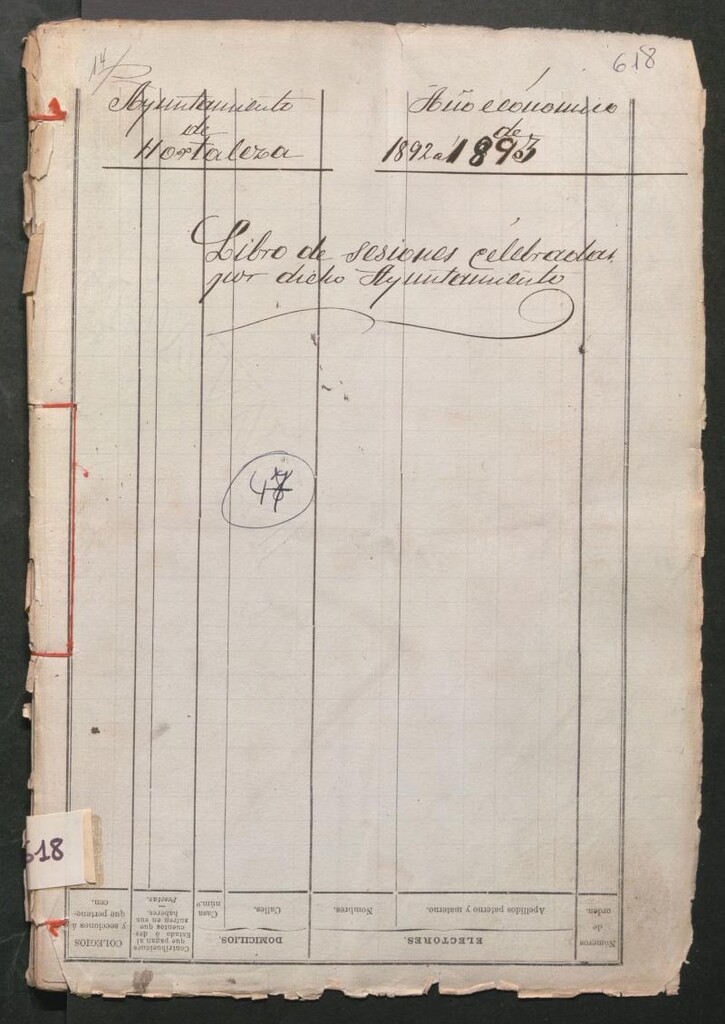 14
618
Ayuntamiento
de
Hortaleza
Año económico
de
1892 a 1893
Libro de sesiones celebradas
por dicho Ayuntamiento
47
618
Números
de
orden.
ELECTORES.
Apellidos paterno y materno.
Nombres.
DOMICILIOS.
Calles.
Casa
núm.º
Contribuciones
que pagan al
Estado ó des
cuentos que
sufren en sus
haberes.
—
Pesetas.
COLEGIOS
y secciones á
que pertene-
cen.